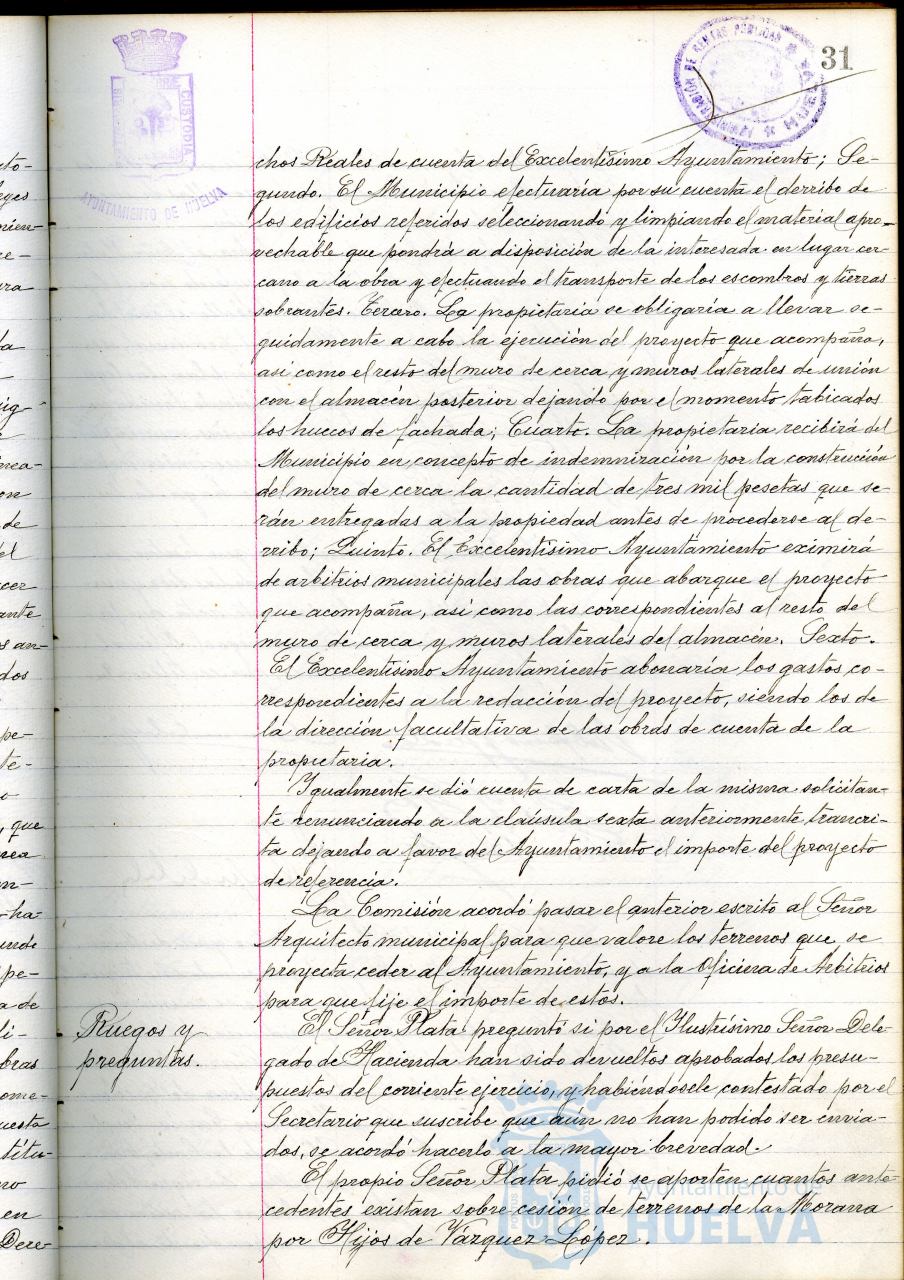 31
CUSTODIA
AYUNTAMIENTO DE HUELVA
DE RENTAS PUBLICAS
chos Reales de cuenta del Excelentísimo Ayuntamiento; Se-
gundo. El Municipio efectuaría por su cuenta el derribo de
los edificios referidos seleccionando y limpiando el material apro-
vechable que pondrá a disposición de la interesada en lugar cer-
cano a la obra y efectuando el transporte de los escombros y tierras
sobrantes. Tercero. La propietaria se obligaría a llevar se-
guidamente a cabo la ejecución del proyecto que acompaña,
así como el resto del muro de cerca y muros laterales de unión
con el almacén posterior dejando por el momento tabicados
los huecos de fachada; Cuarto. La propietaria recibirá del
Municipio en concepto de indemnización por la construcción
del muro de cerca la cantidad de tres mil pesetas que se-
rán entregadas a la propiedad antes de procederse al de-
rribo; Quinto. El Excelentísimo Ayuntamiento eximirá
de arbitrios municipales las obras que abarque el proyecto
que acompaña, así como las correspondientes al resto del
muro de cerca y muros laterales del almacén. Sexto.
El Excelentísimo Ayuntamiento abonaría los gastos co-
rrespondientes a la redacción del proyecto, siendo los de
la dirección facultativa de las obras de cuenta de la
propietaria.
Igualmente se dió cuenta de carta de la misma solicitan-
te renunciando a la cláusula sexta anteriormente trancri-
ta dejando a favor del Ayuntamiento el importe del proyecto
de referencia.
La Comisión acordó pasar el anterior escrito al Señor
Arquitecto municipal para que valore los terrenos que se
proyecta ceder al Ayuntamiento, y a la Oficina de Arbitrios
para que fije el importe de estos.
Ruegos y
preguntas.
El Señor Plata preguntó si por el Ilustrísimo Señor Dele-
gado de Hacienda han sido devueltos aprobados los presu-
puestos del corriente ejercicio, y habiéndosele contestado por el
Secretario que suscribe que aún no han podido ser envia-
dos, se acordó hacerlo a la mayor brevedad.
El propio Señor Plata pidió se aporten cuantos ante-
cedentes existan sobre cesión de terrenos de la Morana
por Hijos de Vázquez López.
Ayuntamiento de
HUELVA